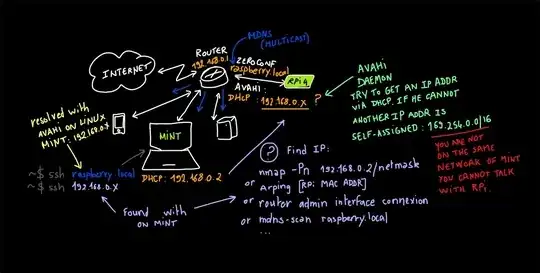 MDNS
(MULTICAST)
ROUTER
192.168.0.1
ZEROCONF
raspberry.local
INTERNET
AVAHI:
DHCP: 192.168.0.X ?
RPi4
AVAHI
DAEMON
TRY TO GET AN IP ADDR
VIA DHCP. IF HE CANNOT
ANOTHER IP ADDR IS
SELF-ASSIGNED: 169.254.0.0/16
YOU ARE NOT
ON THE SAME
NETWORK OF MINT
YOU CANNOT TALK
WITH RPi.
resolved with
AVAHI ON LINUX
MINT: 192.168.0.X
MINT
DHCP: 192.168.0.2
~$ ssh raspberry.local
~$ ssh 192.168.0.X
Found with
ON MINT
? Find IP:
nmap -Pn 192.168.0.2/netmask
or Arping [RPi MAC ADDR]
or router admin interface connexion
or mdns-scan raspberry.local
...